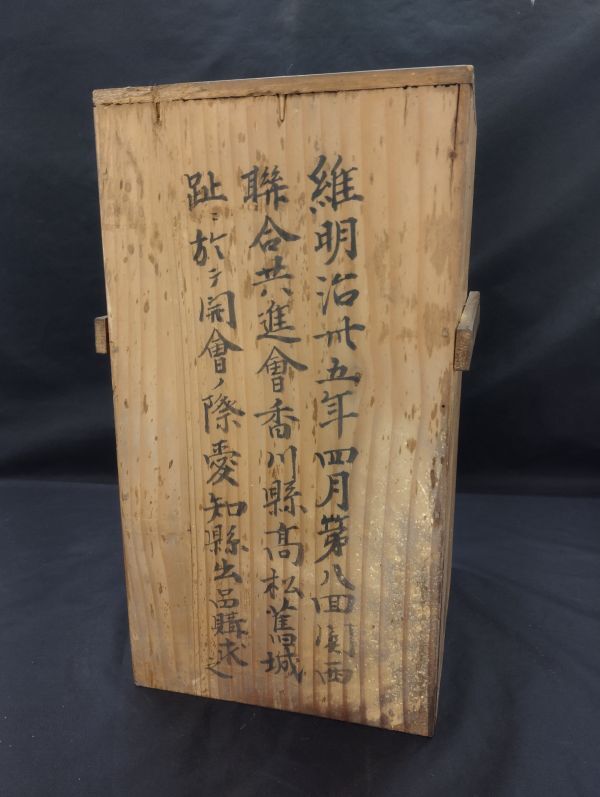 維明治卅五年四月第八回関西
聯合共進會香川縣髙松舊城
趾ニ於テ開會ノ際愛知縣出品購求之